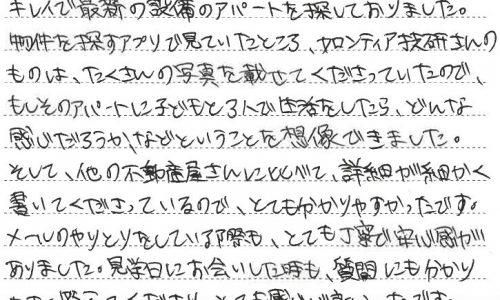 キレイで最新の設備のアパートを探しておりました。
物件を探すアプリで見ていたところ、カロンティア技研さんの
ものは、たくさんの写真を載せてくださっていたので、
もしそのアパートに子どもと3人で生活をしたら、どんな
感じだろうか、などということを想像できました。
そして、他の不動産屋さんにくらべて、詳細が細かく
書いてくださっているので、とても分かりやすかったです。
メールのやりとりをしている際も、とても丁寧で安心感が
ありました。見学日にお会いした時も、質問にも分かり